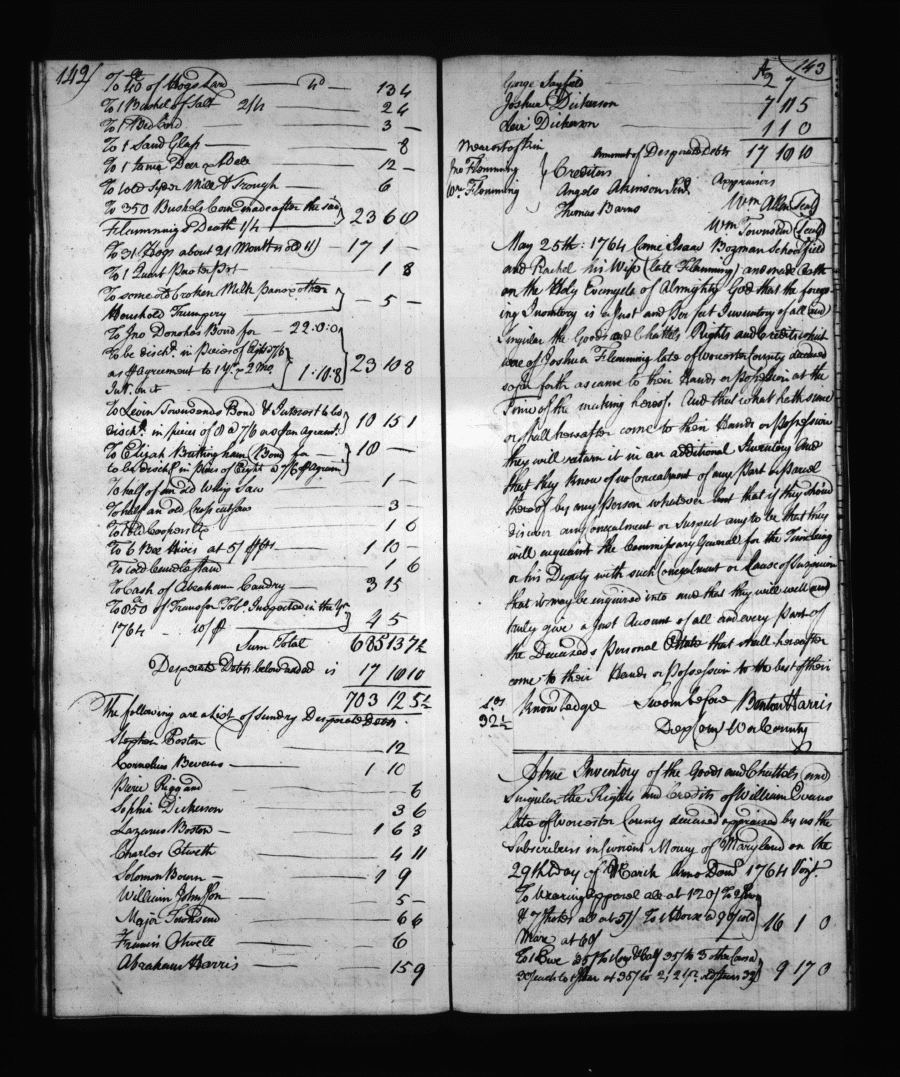 142/
To 40 of Hogs Lard 4d 13 4
To 1 Bushel of Salt 2/4 2 4
To 1 Bed Cord 3 —
To 1 Sand Glass 8
To 1 tame Deer & Bell 12 —
To 1 old Syder Mill & Trough 6
To 350 Bushels Corn made after the said
Flemmings Death 1/4 23 6 8
To 31 Hogs about 21 Months old @ 11/ 17 1 —
To 1 Quart Pewter Pot 1 8
To some old broken Milk Pans & other
Household Trumpery — 5 —
To Jno Donohos Bond for — 22:0:0
to be disch'd in Peices of Eight @ 7/6
as agreement to 1 yr & 2 Mo. 1:10:8 23 10 8
Int. on it
To Levin Townsends Bond & Interest to be
disch'd in pieces of 8 @ 7/6 as agreemt 10 15 1
To Elizah Brittingham Bond for 10 —
to be disch'd in Pieces of Eight @ 7/6 agreem
To half of an old Whip Saw 1 —
To half an old Cross cut saw 3 —
To 1 old Coopers Ax 1 6
To 6 Bee Hives at 5/ 1 10 —
To 1 old Candle stand 1 6
To Cash of Abraham Candry 3 15
To 850 of Transfer Tobo. Inspected in the Yr
1764 10/ 4 5
Sum Total 685 13 7½
Desperate Debts below added is 17 10 10
703 12 5½
The following are a list of Sundry Desperate Debts
Stephen Poston 12
Cornelius Bevans 1 10
Peirce Riggand 6
Sophia Dickerson 3 6
Lazarus Boston 1 6 3
Charles Otweth 4 11
Solomon Bourn 1 9
William Johnson — 5 —
Major Townsend 6 6
Francis Otwell 6
Abraham Harris 15 9
143
George Sayfield 2 7
Joshua Dickerson 7 11 5
Levi Dickerson 1 1 0
Nearest of kin Amount of Desperate Debts 17 10 10
Jno Flemming Creditors Appraisers
Wm Flemming Angelo Atkinson Wm Allen (Seal)
Thomas Barns
Wm Townsen (Seal)
May 25th: 1764 Came Isaac Bozman Schoolfield
and Rachel his Wife (late Flemming) and made Oath
on the Holy Evangels of Almighty God that the forego
ing Inventory is a Just and Perfect Inventory of all and
Singular the Goods and Chattels Rights and Credits what
were of Joshua Flemming late of Worcester County deceased
so far forth as came to their Hands or Possession at the
Time of the making hereof. And that what hath since
or shall hereafter come to their Hands or Possession
they will return it in an additional Inventory And
that they know of no Concealment of any Part or Parcel
thereof by any Person whatever but that if they shou'd
discover any concealment or Suspect any to be that they
will acquaint the Commissary General for the Time being
or his Deputy with such Concealment or Cause of Suspicion
that it may be inquired into and that they will well and
truly give a Just Account of all and every Part of
the Deceased's Personal Estate that shall hereafter
come to their Hands or Possession to the best of their
Knowledge Sworn before Benton Harris
32½ Dep Comy Wor County
A true Inventory of the Goods and Chattels and
Singular the Rights and Credits of William Evans
late of Worcester County deceased appraised by us the
Subscribers in Current Money of Maryland on the
29th day of March Anno Domi 1764 Vizt.
To wearing apparel all at
at 5/ To 1 Horse @ 90/ 16 1 0
Mare at 60/
To 1 Ewe Cow & Calf 35/ to 3 other
9 17 0